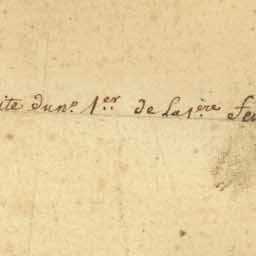 ite du n.o 1.er de La 1.ère feu